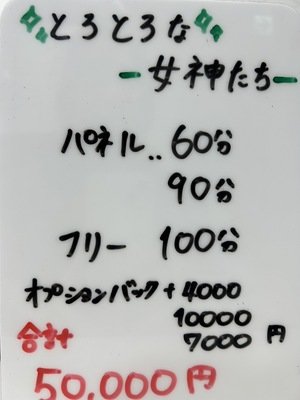 とろとろな
ー女神たちー
パネル‥60分
90分
フリー 100分
オプションバック+4000
10000
7000円
合計
50,000円